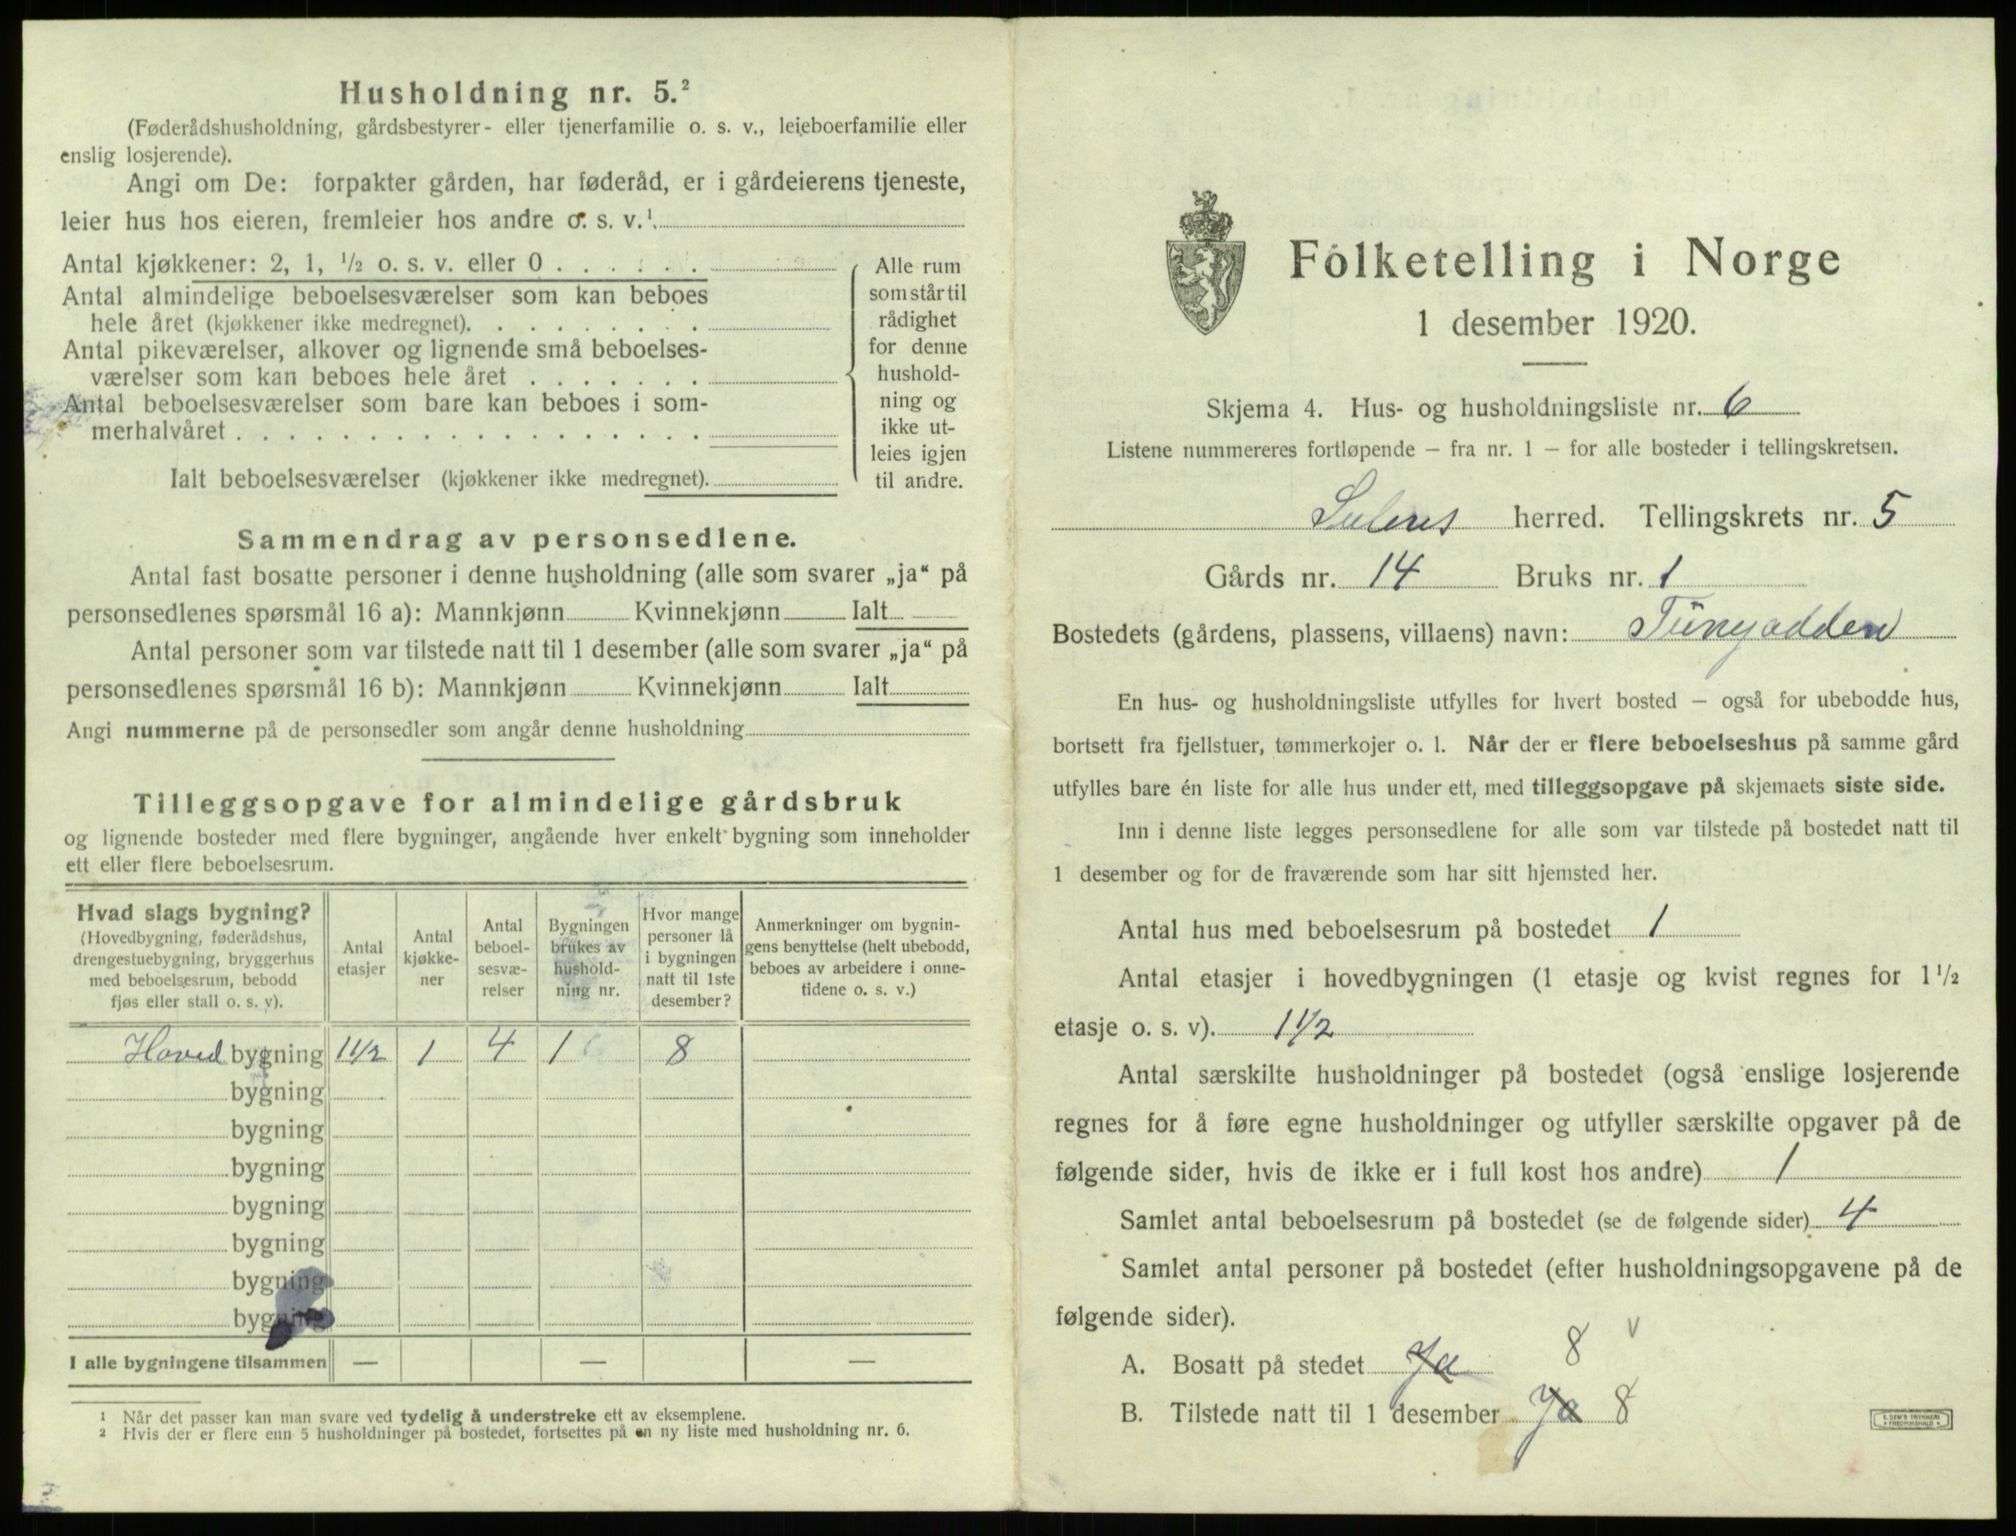 Husholdning nr. 5.²
(Føderådshusholdning, gårdsbestyrer- eller tjenerfamilie o. s. v., leieboerfamilie eller
enslig losjerende).
Angi om De: forpakter gården, har føderåd, er i gårdeierens tjeneste,
leier hus hos eieren, fremleier hos andre o. s. v.¹
Antal kjøkkener: 2, 1, ½ o. s. v. eller 0
Antal almindelige beboelsesværelser som kan beboes
hele året (kjøkkener ikke medregnet).
Antal pikeværelser, alkover og lignende små beboelses-
værelser som kan beboes hele året
Antal beboelsesværelser som bare kan beboes i som-
merhalvåret
Ialt beboelsesværelser (kjøkkener ikke medregnet).
Alle rum
som står til
rådighet
for denne
hushold-
ning og
ikke ut-
leies igjen
til andre.
Sammendrag av personsedlene.
Antal fast bosatte personer i denne husholdning (alle som svarer „ja“ på
personsedlenes spørsmål 16 a): Mannkjønn Kvinnekjønn Ialt
Antal personer som var tilstede natt til 1 desember (alle som svarer „ja“ på
personsedlenes spørsmål 16 b): Mannkjønn Kvinnekjønn Ialt
Angi nummerne på de personsedler som angår denne husholdning
Tilleggsopgave for almindelige gårdsbruk
og lignende bosteder med flere bygninger, angående hver enkelt bygning som inneholder
ett eller flere beboelsesrum.
Hvad slags bygning?
(Hovedbygning, føderådshus,
drengestuebygning, bryggerhus
med beboelsesrum, bebodd
fjøs eller stall o. s. v).
Antal
etasjer
Antal
kjøkke-
ner
Antal
beboel-
sesvæ-
relser
Bygningen
brukes av
hushold-
ning nr.
Hvor mange
personer lå
i bygningen
natt til 1ste
desember?
Anmerkninger om bygnin-
gens benyttelse (helt ubebodd,
beboes av arbeidere i onne-
tidene o. s. v.)
Hoved bygning 1½ 1 4 1 8
bygning
bygning
bygning
bygning
bygning
bygning
bygning
I alle bygningene tilsammen — — —
¹ Når det passer kan man svare ved tydelig å understreke ett av eksemplene.
² Hvis der er flere enn 5 husholdninger på bostedet, fortsettes på en ny liste med husholdning nr. 6.
Folketelling i Norge
1 desember 1920.
Skjema 4. Hus- og husholdningsliste nr. 6
Listene nummereres fortløpende — fra nr. 1 — for alle bosteder i tellingskretsen.
herred. Tellingskrets nr. 5
Gårds nr. 14 Bruks nr. 1
Bostedets (gårdens, plassens, villaens) navn:
En hus- og husholdningsliste utfylles for hvert bosted — også for ubebodde hus,
bortsett fra fjellstuer, tømmerkojer o. l. Når der er flere beboelseshus på samme gård
utfylles bare én liste for alle hus under ett, med tilleggsopgave på skjemaets siste side.
Inn i denne liste legges personsedlene for alle som var tilstede på bostedet natt til
1 desember og for de fraværende som har sitt hjemsted her.
Antal hus med beboelsesrum på bostedet 1
Antal etasjer i hovedbygningen (1 etasje og kvist regnes for 1½
etasje o. s. v). 1½
Antal særskilte husholdninger på bostedet (også enslige losjerende
regnes for å føre egne husholdninger og utfyller særskilte opgaver på de
følgende sider, hvis de ikke er i full kost hos andre) 1
Samlet antal beboelsesrum på bostedet (se de følgende sider) 4
Samlet antal personer på bostedet (efter husholdningsopgavene på de
følgende sider).
A. Bosatt på stedet Ja 8 v
B. Tilstede natt til 1 desember Ja 8
E. SEM'S TRYKKERI
FREDRIKSHALD